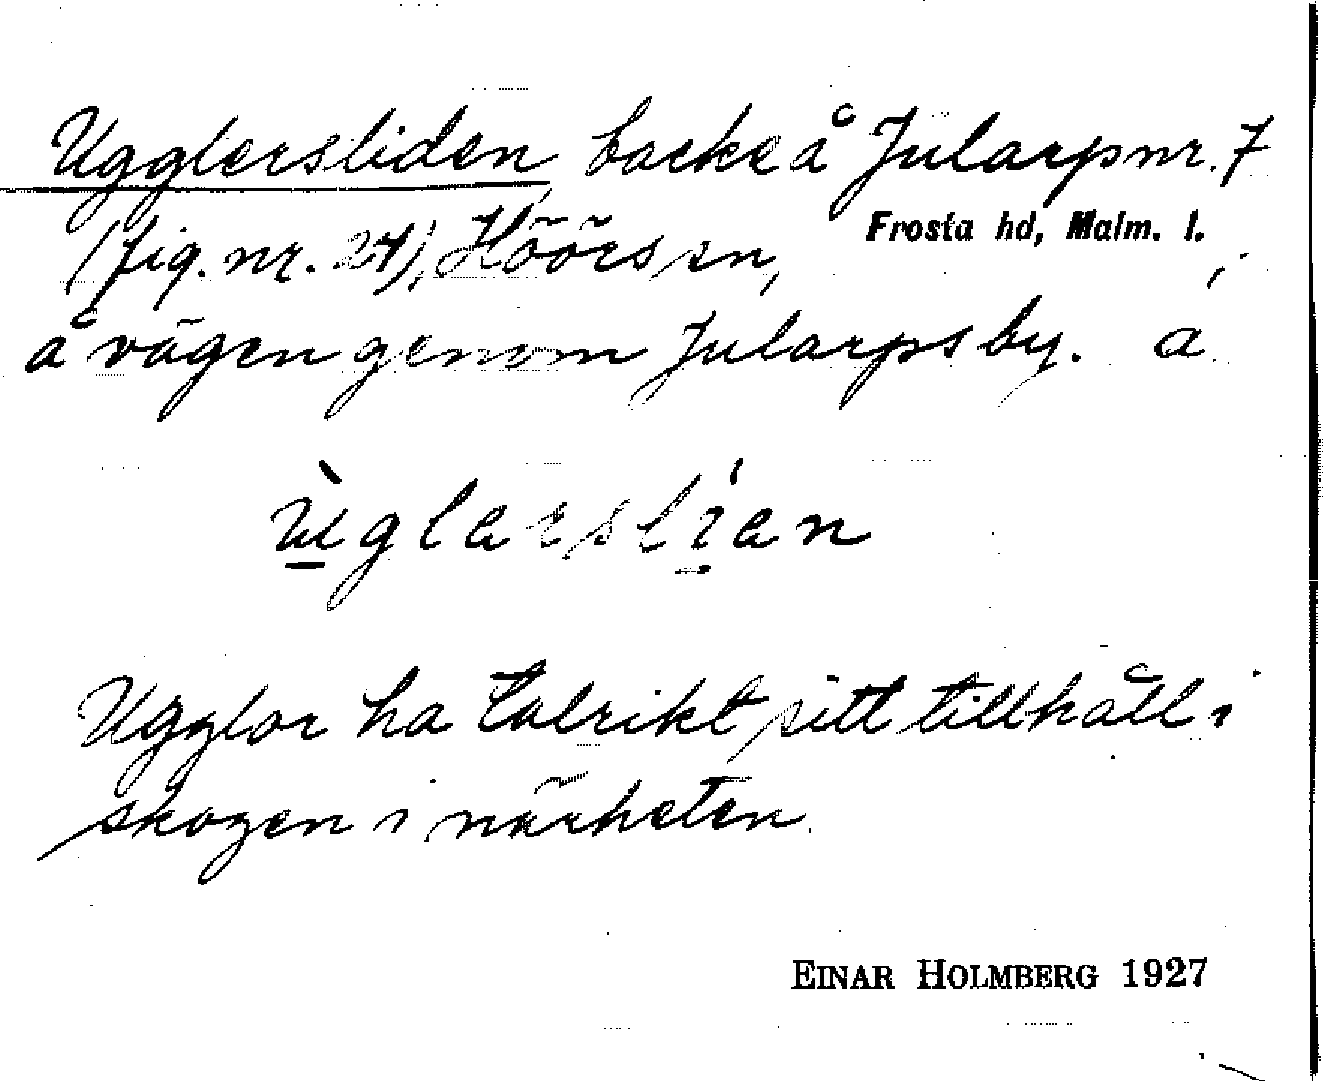 Ugglersliden, backe å Jularp nr. 7
(fig. nr. 24), Höörs sn, Frosta hd, Malm. l.
å vägen genom Jularps by. a.
ùglersli̱en
Ugglor ha talrikt sitt tillhåll i
skogen i närheten.
EINAR HOLMBERG 1927